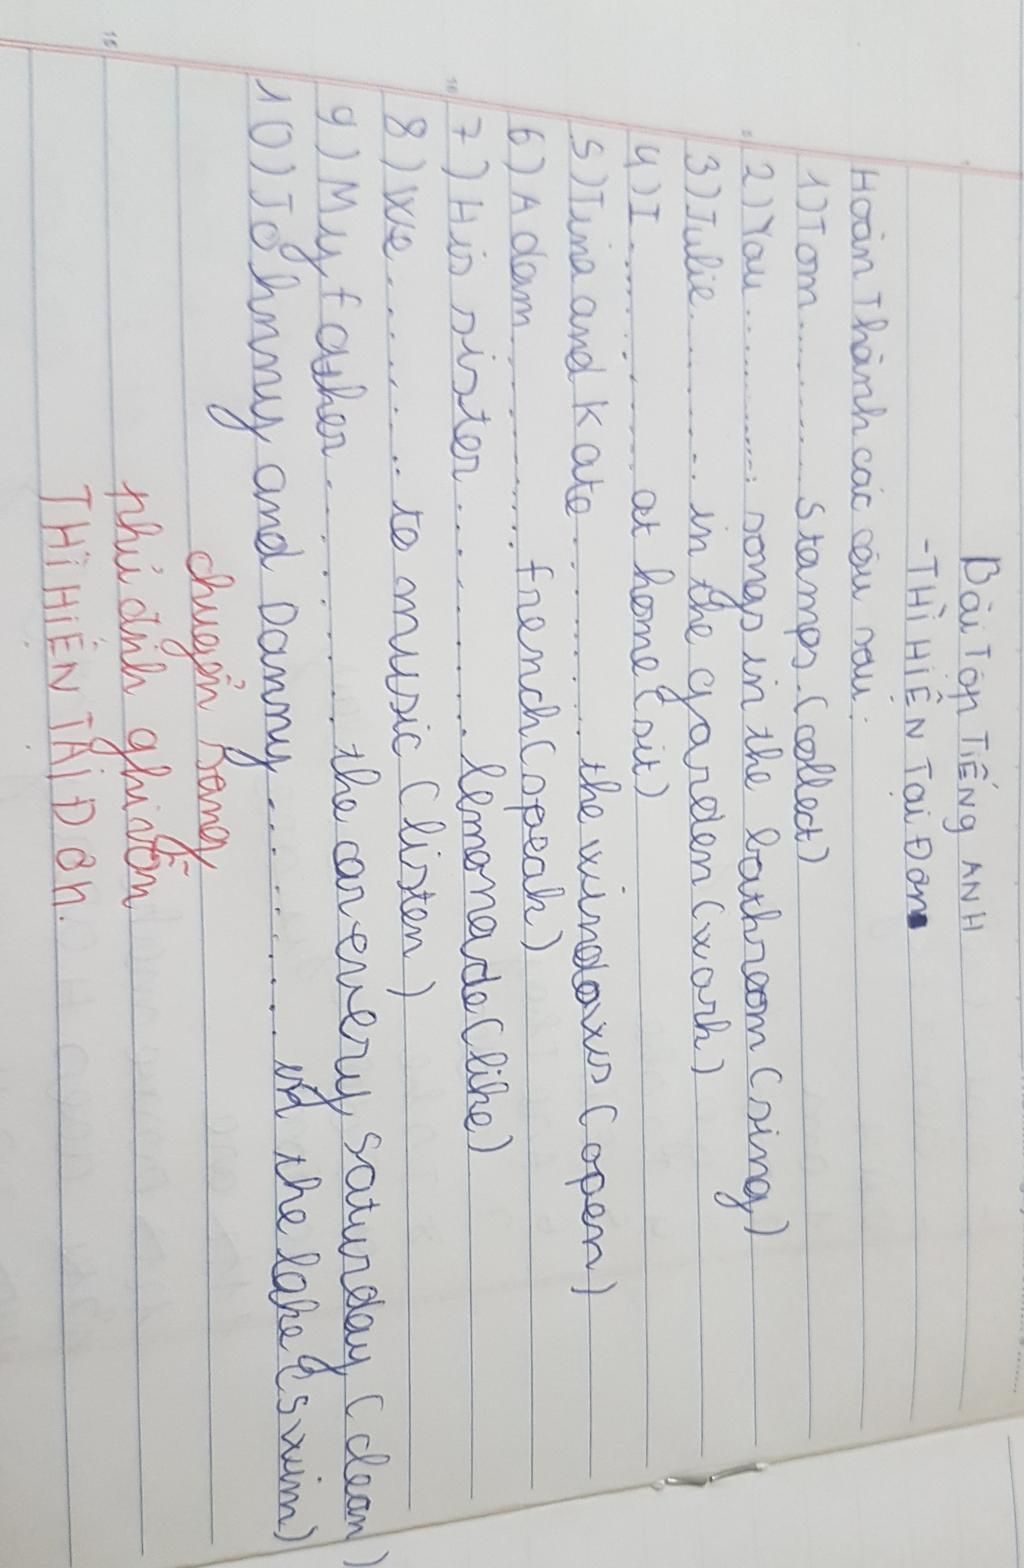 Bài Tập Tiếng ANH
-THÌ HIỆN Tại Đơn
Hoàn Thành các câu sau:
1) Tom............ stamps. (collect)
2) You............ songs in the bathroom (sing)
3) Julie............ in the garden (work)
4) I............ at home (sit)
5) Tina and Kate............ the windows (open)
6) Adam............ french (speak)
7) His sister............ lemonade (like)
8) We............ to music (listen)
9) My father............ the car every saturday (clean)
10) Johnny and Danny............ in the lake (swim)
chuyển sang
phủ định ghi vấn
THÌ HIỆN TẠI ĐƠN.